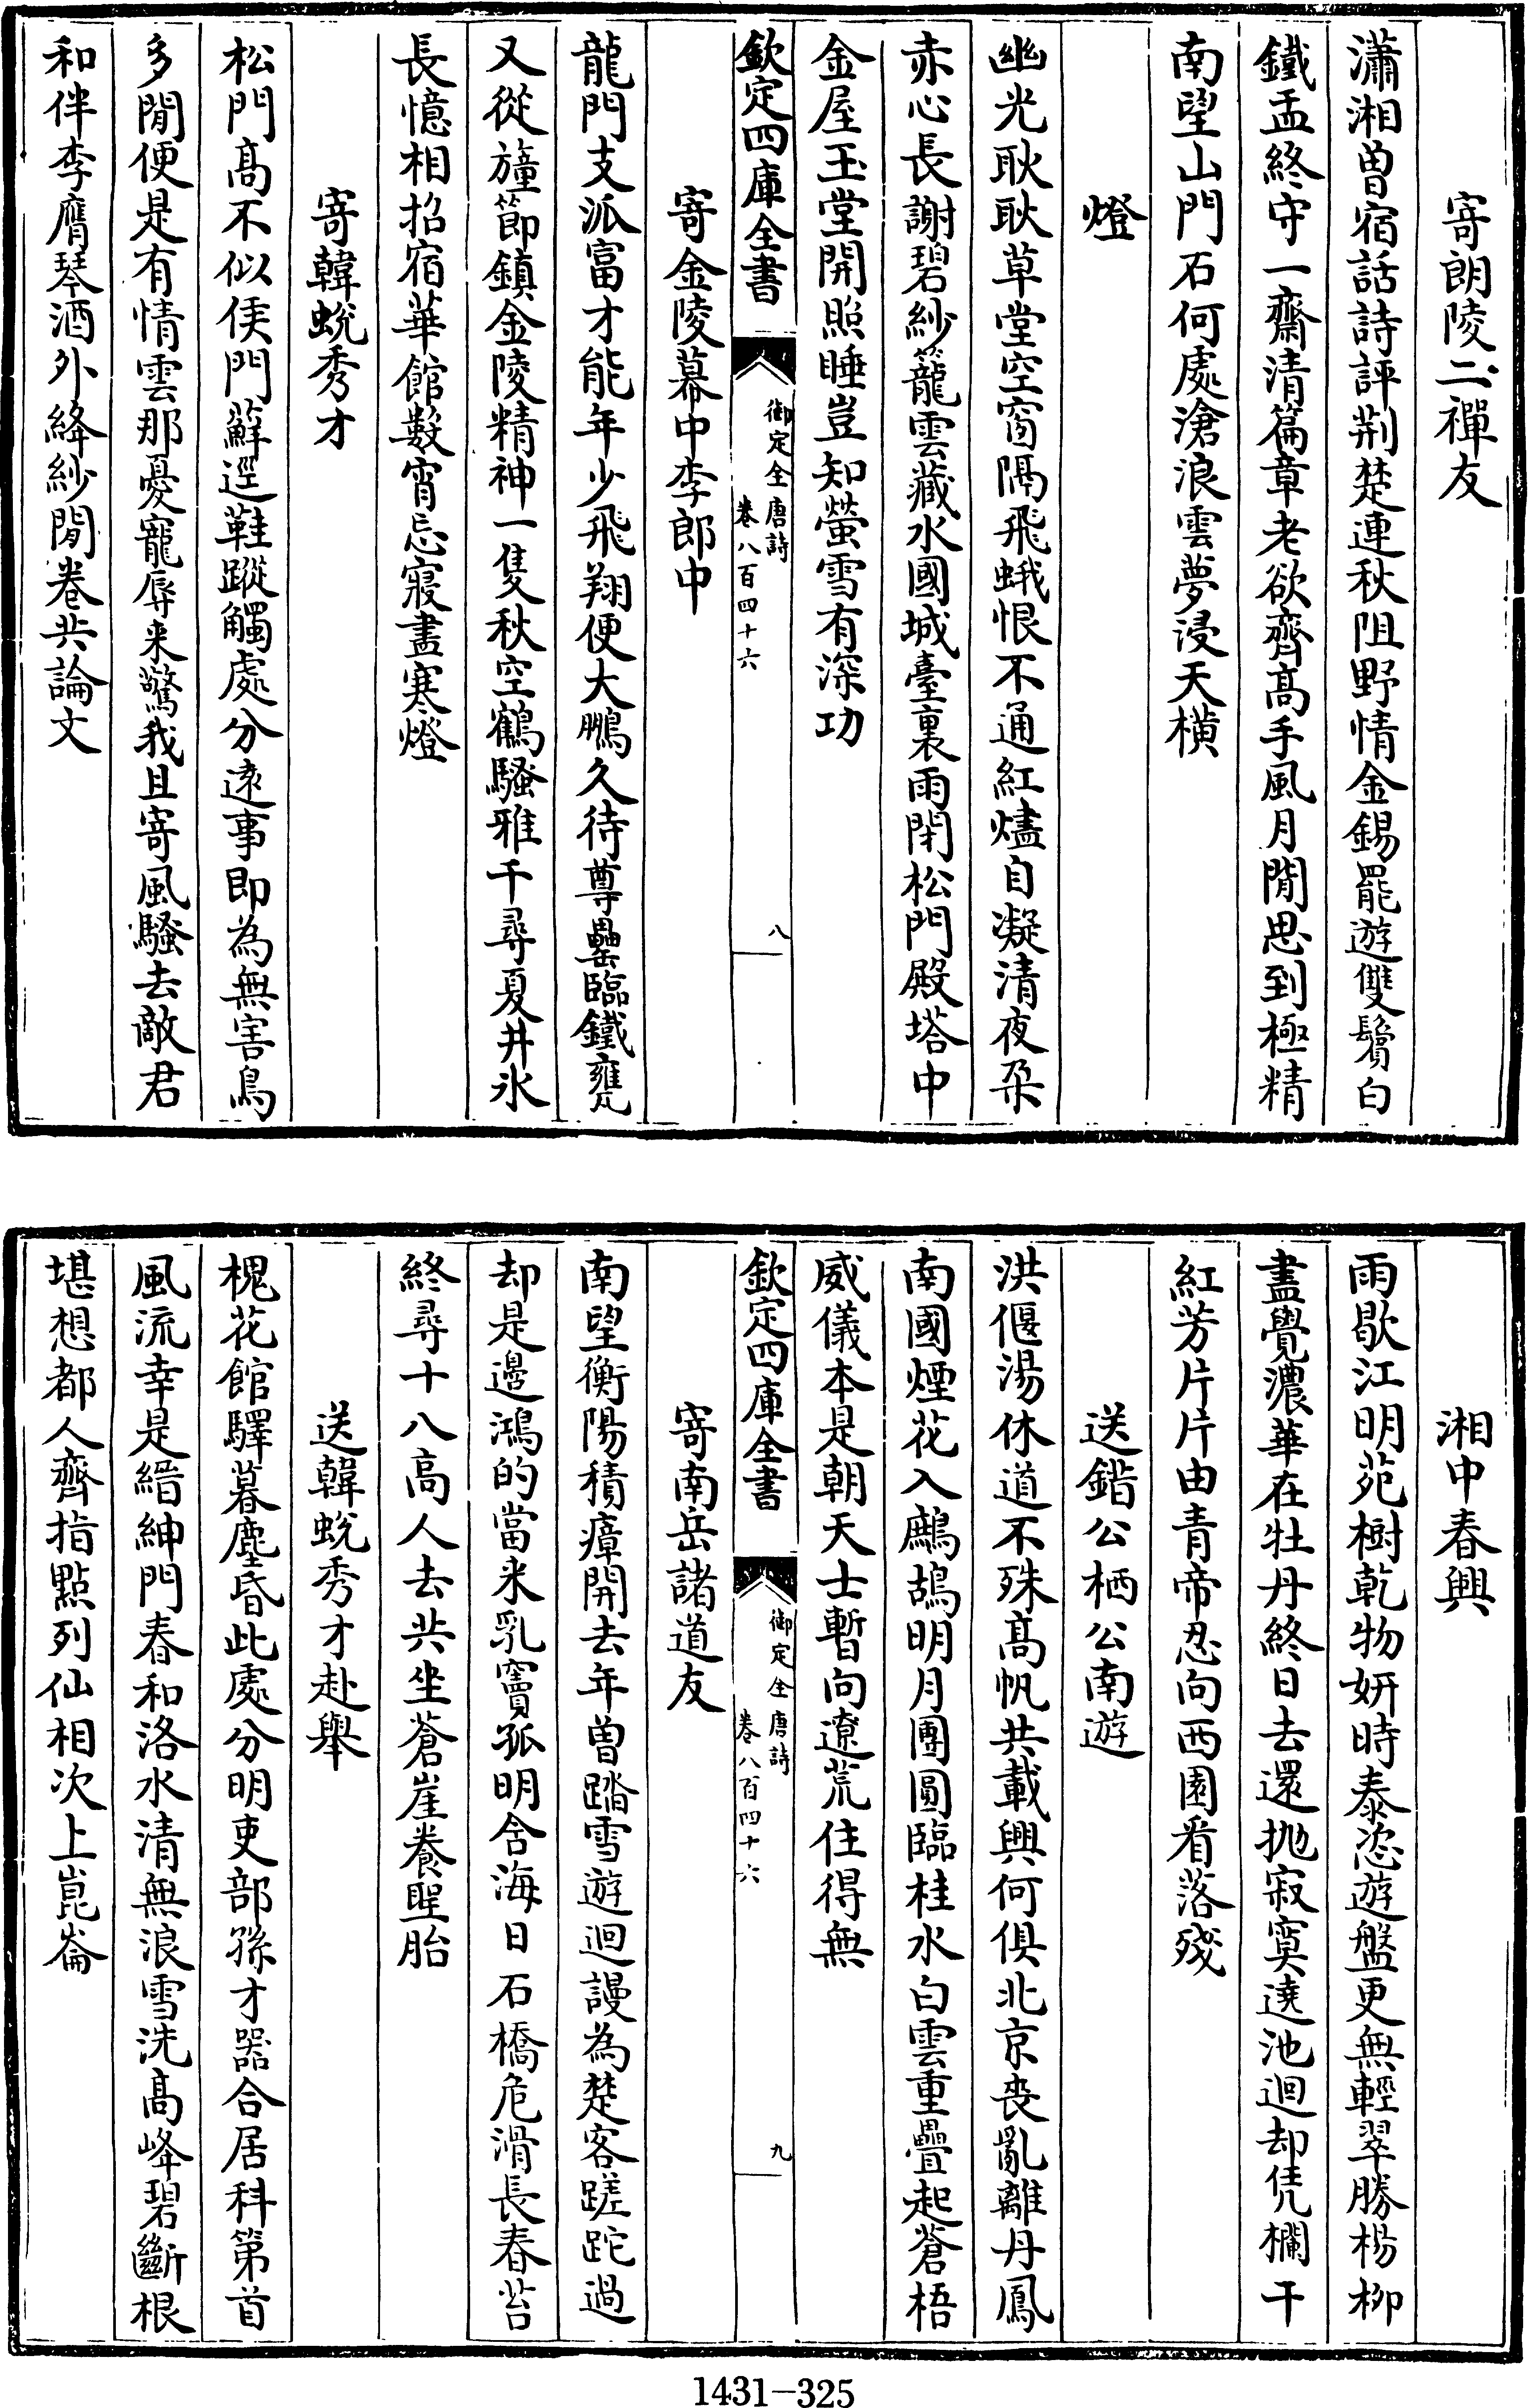 寄朗陵二禪友
瀟湘曾宿話詩評荆楚連秋阻野情金錫罷遊雙鬢白
鐵盂終守一齋清篇章老欲齊髙手風月閒思到極精
南望山門石何處滄浪雲夢浸天橫
燈
幽光耿耿草堂空窗隔飛蛾恨不通紅燼自凝清夜朶
赤心長謝碧紗籠雲藏水國城臺裏雨閉松門殿塔中
金屋玉堂開照睡豈知螢雪有深功
欽定四庫全書
御定全唐詩
卷八百四十六
八
寄金陵幕中李郎中
龍門支派富才能年少飛翔便大鵬久待尊罍臨鐵甕
又從旌節鎮金陵精神一隻秋空鶴騷雅千尋夏井氷
長憶相招宿華館數宵忘寢盡寒燈
寄韓蛻秀才
松門髙不似侯門蘚逕鞋蹤觸處分遠事即為無害鳥
多閒便是有情雲那憂寵辱来驚我且寄風騷去敵君
和伴李膺琴酒外絳紗閒卷共論文
湘中春興
雨歇江明苑樹乾物妍時泰恣遊盤更無輕翠勝楊柳
盡覺濃華在牡丹終日去還抛寂寞遶池迴却凭欄干
紅芳片片由青帝忍向西園看落殘
送鍇公栖公南遊
洪偃湯休道不殊髙帆共載興何俱北京喪亂離丹鳳
南國煙花入鷓鴣明月團圓臨桂水白雲重疊起蒼梧
威儀本是朝天士暫向遼荒住得無
欽定四庫全書
御定全唐詩
卷八百四十六
九
寄南岳諸道友
南望衡陽積瘴開去年曽踏雪遊迴謾為楚客蹉跎過
却是邊鴻的當来乳竇孤明含海日石橋危滑長春苔
終尋十八高人去共坐蒼崖養聖胎
送韓蛻秀才赴舉
槐花館驛暮塵昏此處分明吏部孫才器合居科第首
風流幸是縉紳門春和洛水清無浪雪洗髙峰碧斷根
堪想都人齊指點列仙相次上崑崙
1431-325